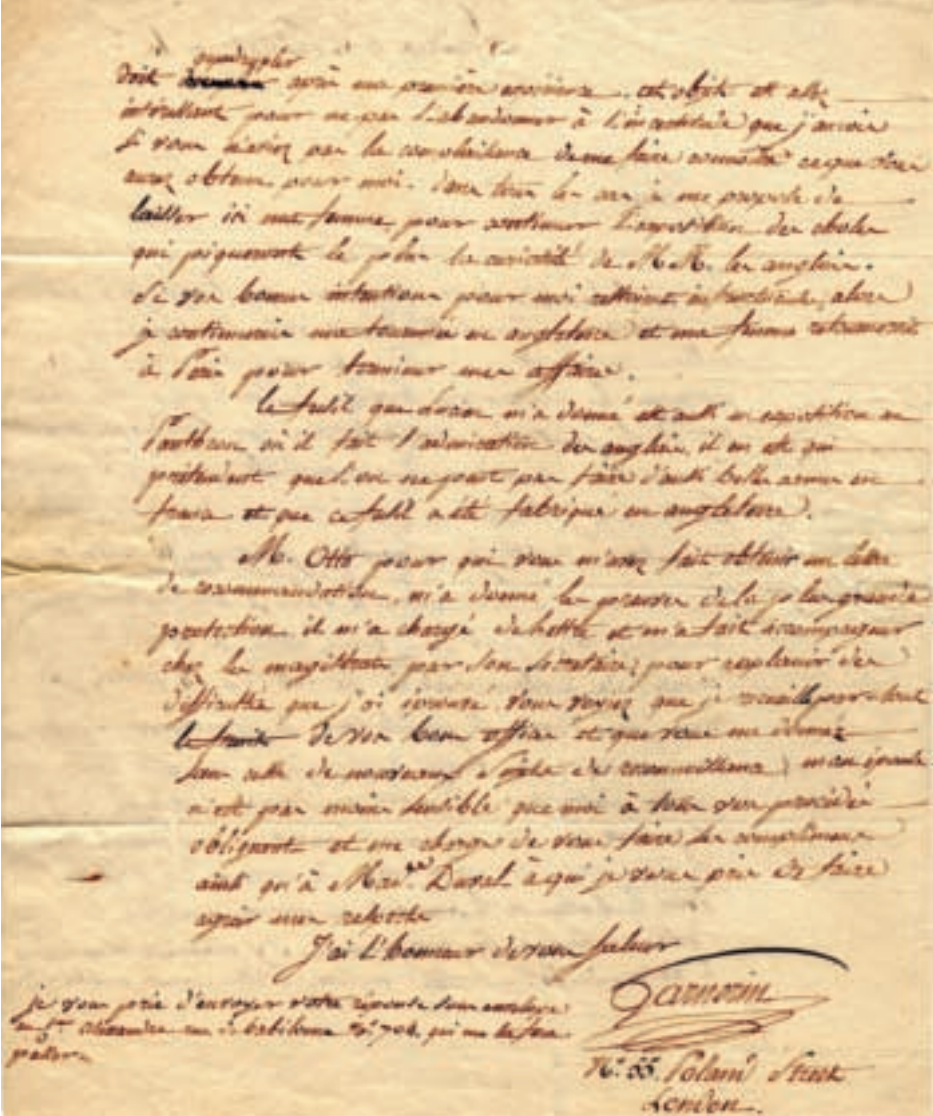 quadrupler
doit après ma première ascension. cet objet est assez
intéressant pour ne pas l'abandonner à l'incertitude que j'aurois
si vous n'aviez pas la complaisance de me faire connoître ce que vous
aurez obtenu pour moi. dans tous les cas je me propose de
laisser ici ma femme pour continuer l'exposition des objets
qui piqueront le plus la curiosité de M.M. les anglais.
Si vos bonnes intentions pour moi alors
je continuerois ma tournée en angleterre et ma femme retourneroit
à Paris pour terminer mes affaires.
le fusil que m'a donné est aussi en exposition au
Panthéon où il fait l'admiration des anglais, il en est qui
prétendent que l'on ne peut pas faire d'aussi belles armes en
france et que ce fusil a été fabriqué en angleterre.
M. Otto pour qui vous m'avez fait obtenir une lettre
de recommandation, m'a donné les preuves de la plus grande
protection. il m'a chargé et m'a fait accompagner
chez les magistrats par son secrétaire, pour des
difficultés que j'ai vous voyez que je recueille partout
le fruit de vos bons offices et que vous me donnez
sans cesse de nouveaux de reconnoissance, mon épouse
n'est pas moins sensible que moi à tous vos procédés
obligeants et me charge de vous faire ses complimens
ainsi qu'à Mad. Durel à qui je vous prie de faire
agréer mon respect
J'ai l'honneur de vous saluer
Garnerin
je vous prie d'envoyer votre réponse sous enveloppe
au rue de babilone N° 704, qui me la fera
passer.
N° 55. Poland Street
London.